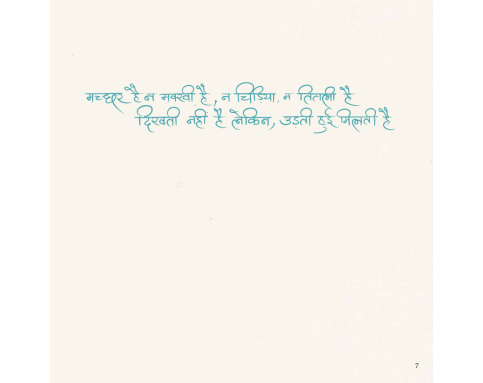 मच्छर है न मक्खी है, न चिड़िया, न तितली है
दिखती नहीं है लेकिन, उड़ती हुई मिलती है
7